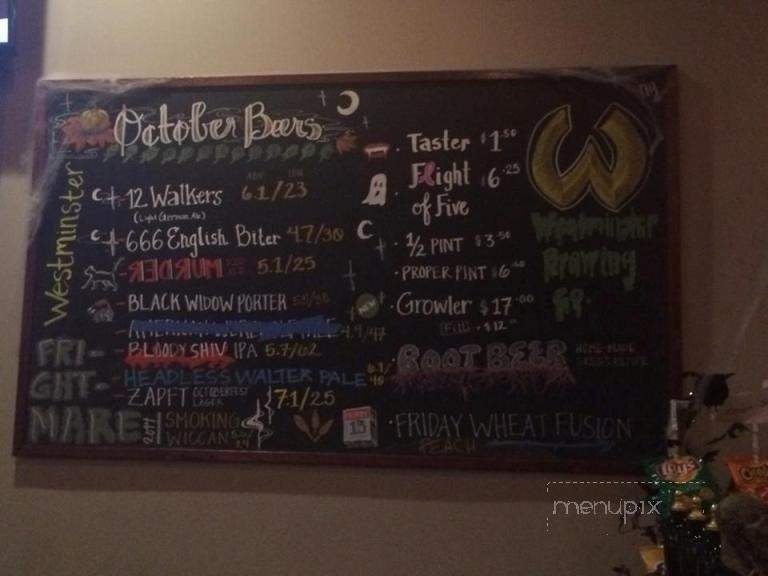 October Beers
Westminster
ABV IBU
12 Walkers 6.1/23
(Light German Ale)
666 English Biter 4.7/30
MURDER RED ALE 5.1/25
BLACK WIDOW PORTER
AMERICAN WEREWOLF PALE 4.9/47
BLOODY SHIV IPA 5.7/62
HEADLESS WALTER PALE 6.1/40
ZAPFT OCTOBERFEST LAGER 7.1/25
FRI-
GHT-
MARE
2017
SMOKING
WICCAN
Taster $1.50
Flight $6.25
of Five
1/2 PINT $3.50
PROPER PINT $6
Growler $17.00
Fill $12
ROOT BEER HOME-MADE
RECIPE
13
FRIDAY WHEAT FUSION
PEACH
W
Westminster
Brewing
Co.
menupix